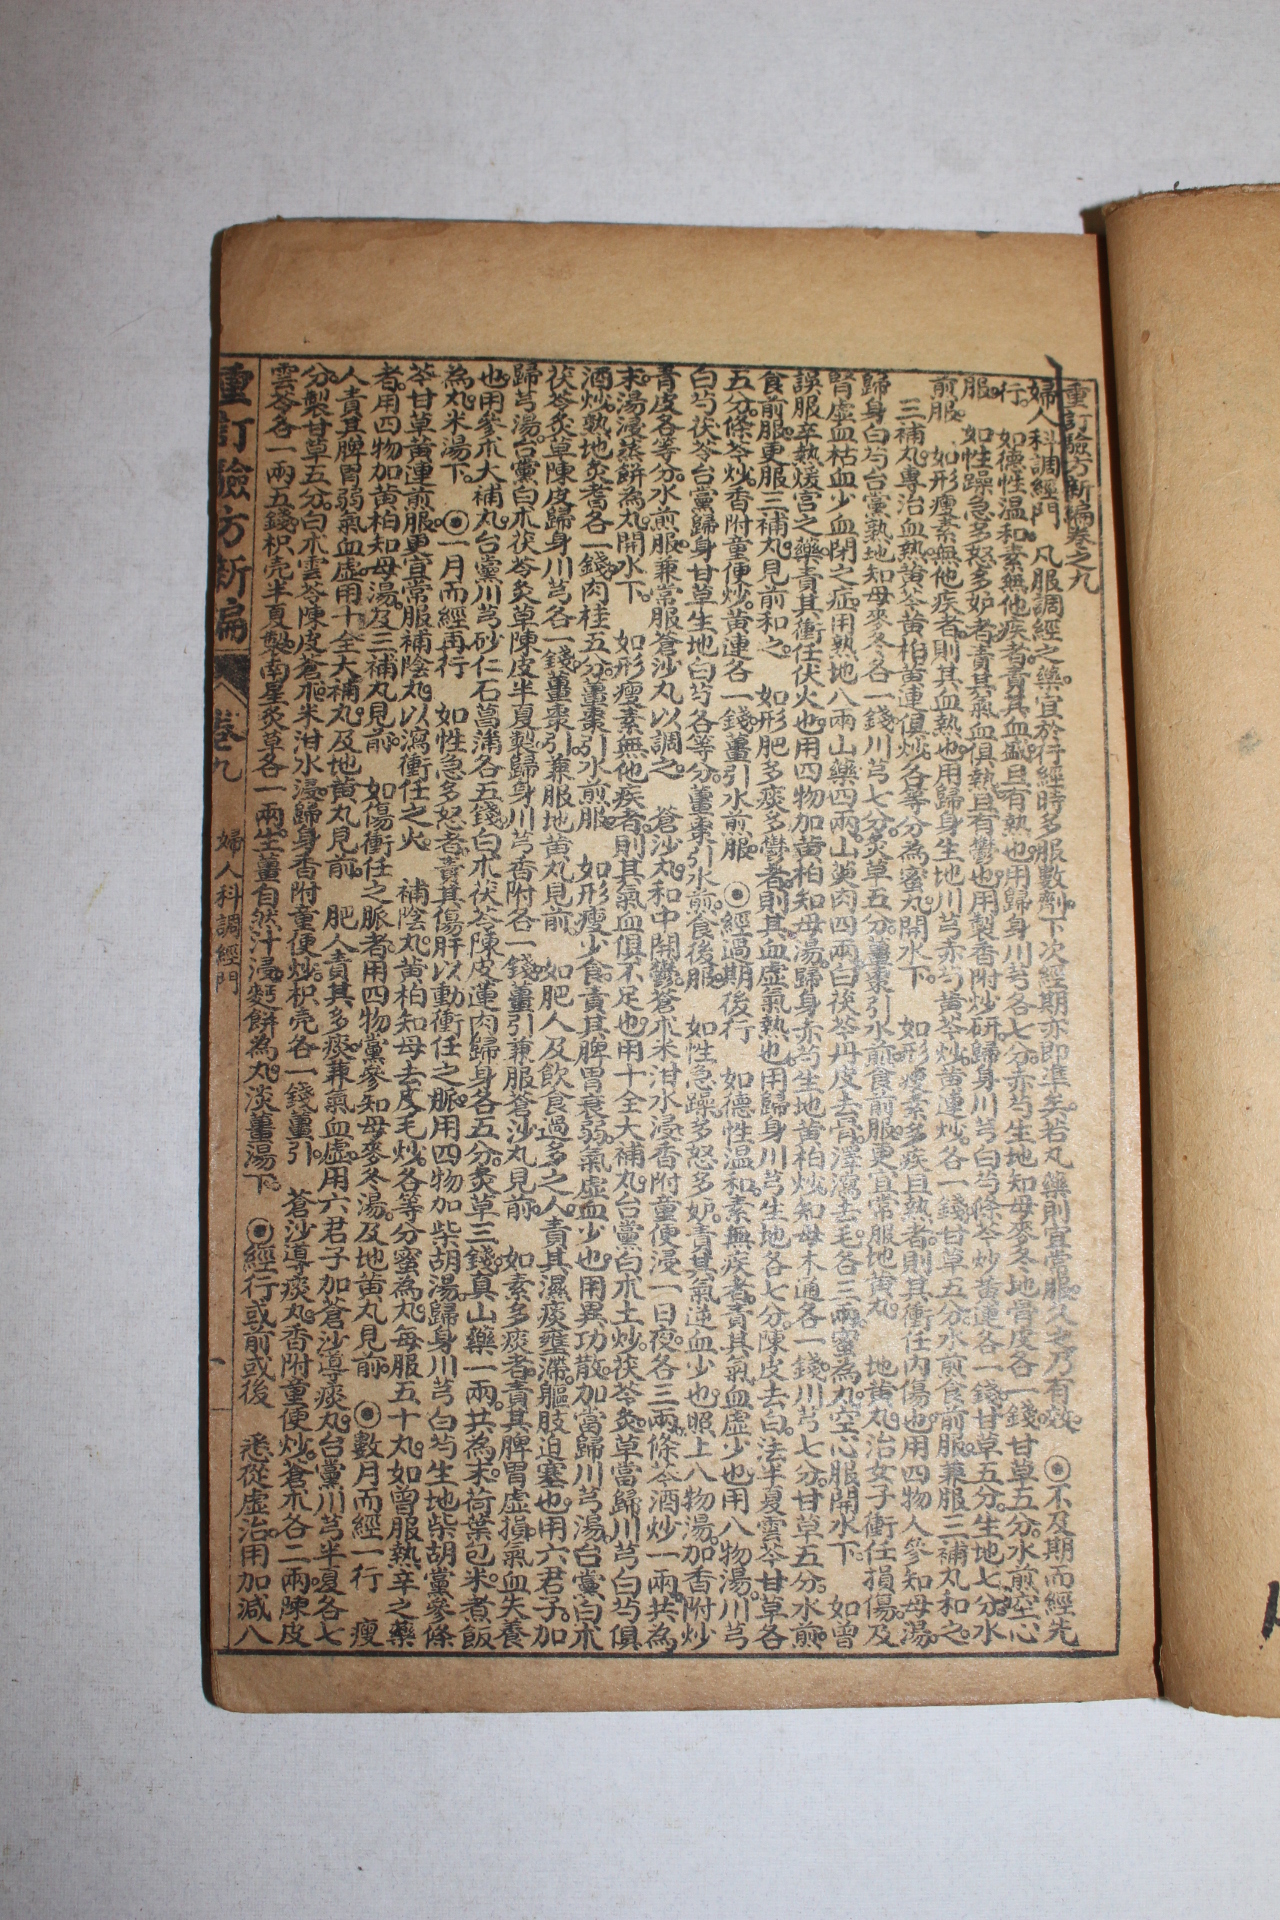 重訂驗方新編卷之九
婦人科調經門　凡服調經之藥。宜於行經時多服數劑。下次經期亦即準矣。若丸藥則宜常服。久之乃有效。　◉不及期而經先
行。　如德性溫和。素無他疾者。責其血盛且有熱也。用歸身川芎各七分。赤芍生地知母麥冬地骨皮各一錢。甘草五分。水煎空心
服。　如性躁急多怒多妒者。責其氣血俱熱。且有鬱也。用製香附炒研。歸身川芎白芍條芩炒黃連各一錢。甘草五分。生地七分。水
煎服。　如形瘦素無他疾者。則其血熱也。用歸身生地川芎赤芍黃芩炒。黃連炒。各一錢。甘草五分。水煎食前服。兼服三補丸和之。
三補丸。專治血熱。黃芩黃柏黃連俱炒。各等分為蜜丸。開水下。　如形瘦素多疾且熱者。則其衝任內傷也。用四物人參知母湯。
歸身白芍台黨熟地知母麥冬各一錢。川芎七分。炙草五分。薑棗引水煎食前服。更宜常服地黃丸。　地黃丸。治女子衝任損傷。及
腎虛血枯血少血閉之症。用熟地八兩山藥四兩。山萸肉四兩。白茯苓丹皮去骨。澤瀉去毛各三兩。蜜為丸。空心服開水下。　如曾
誤服辛熱煖宮之藥。責其衝任伏火也。用四物加黃柏知母湯。歸身赤芍生地黃柏炒。知母木通各一錢。川芎七分。甘草五分。水煎。
食前服。更服三補丸。見前和之。　如形肥多痰多鬱者。則其血虛氣熱也。用歸身川芎生地各七分。陳皮去白。法半夏雲苓甘草各
五分。條芩炒。香附童便炒。黃連各一錢。薑引水煎服。　◉經過期後行　如德性溫和。素無疾者。責其氣血虛少也。用八物湯。川芎
白芍茯苓台黨歸身甘草生地白芍各等分。薑棗引水煎。食後服。　如性急躁。多怒多妒。責其氣逆血少也。照上八物湯。加香附炒
青皮各等分。水煎服。兼常服蒼沙丸以調之。　蒼沙丸。和中開鬱。蒼朮米泔水浸。香附童便浸一日夜。各三兩。條芩酒炒一兩。共為
末。湯浸蒸餅為丸。開水下。　如形瘦素無他疾者。則其氣血俱不足也。用十全大補丸。台黨白朮土炒。茯苓炙草當歸川芎白芍俱
酒炒。熟地炙耆各一錢。肉桂五分。薑棗引水煎服。　如形瘦少食。責其脾胃衰弱。氣虛血少也。用異功散。加當歸川芎湯。台黨白朮
茯苓炙草陳皮歸身川芎各一錢。薑棗引。兼服地黃丸見前。　如肥人及飲食過多之人。責其濕痰壅滯。軀肢迫塞也。用六君子。加
歸芎湯。台黨白朮茯苓炙草陳皮半夏製歸身川芎香附各一錢。薑引。兼服蒼沙丸見前。　如素多痰者。責其脾胃虛損。氣血失養
也。用參朮大補丸。台黨川芎砂仁石菖蒲各五錢。白朮茯苓陳皮蓮肉歸身各五分。炙草三錢。真山藥一兩。共為末。荷葉包米。煮飯
為丸。米湯下。　◉一月而經再行　如性急多怒者。責其傷肝以動衝任之脈。用四物加柴胡湯。歸身川芎白芍生地柴胡黨參條
芩甘草黃連煎服。更宜常服補陰丸。以瀉衝任之火。　補陰丸。黃柏知母去皮毛炒。各等分蜜為丸。每服五十丸。如曾服熱辛之藥
者。用四物加黃柏知母湯。及三補丸見前。　如傷衝任之脈者。用四物黨參知母麥冬湯。及地黃丸見前。　◉數月而經一行　瘦
人責其脾胃弱。氣血虛。用十全大補丸。及地黃丸見前。　肥人責其多痰。兼氣血虛。用六君子加蒼沙導痰丸。台黨川芎半夏各七
分。製甘草五分。白朮雲苓陳皮蒼朮米泔水浸。歸身香附童便炒。枳壳各一錢。薑引。　蒼沙導痰丸。香附童便炒。蒼朮各二兩。陳皮
雲苓各一兩五錢。枳壳半夏製。南星炙草各一兩。生薑自然汁浸。麪餅為丸。淡薑湯下。　◉經行或前或後　悉從虛治。用加減八
重訂驗方新編　卷九　婦人科調經門　一